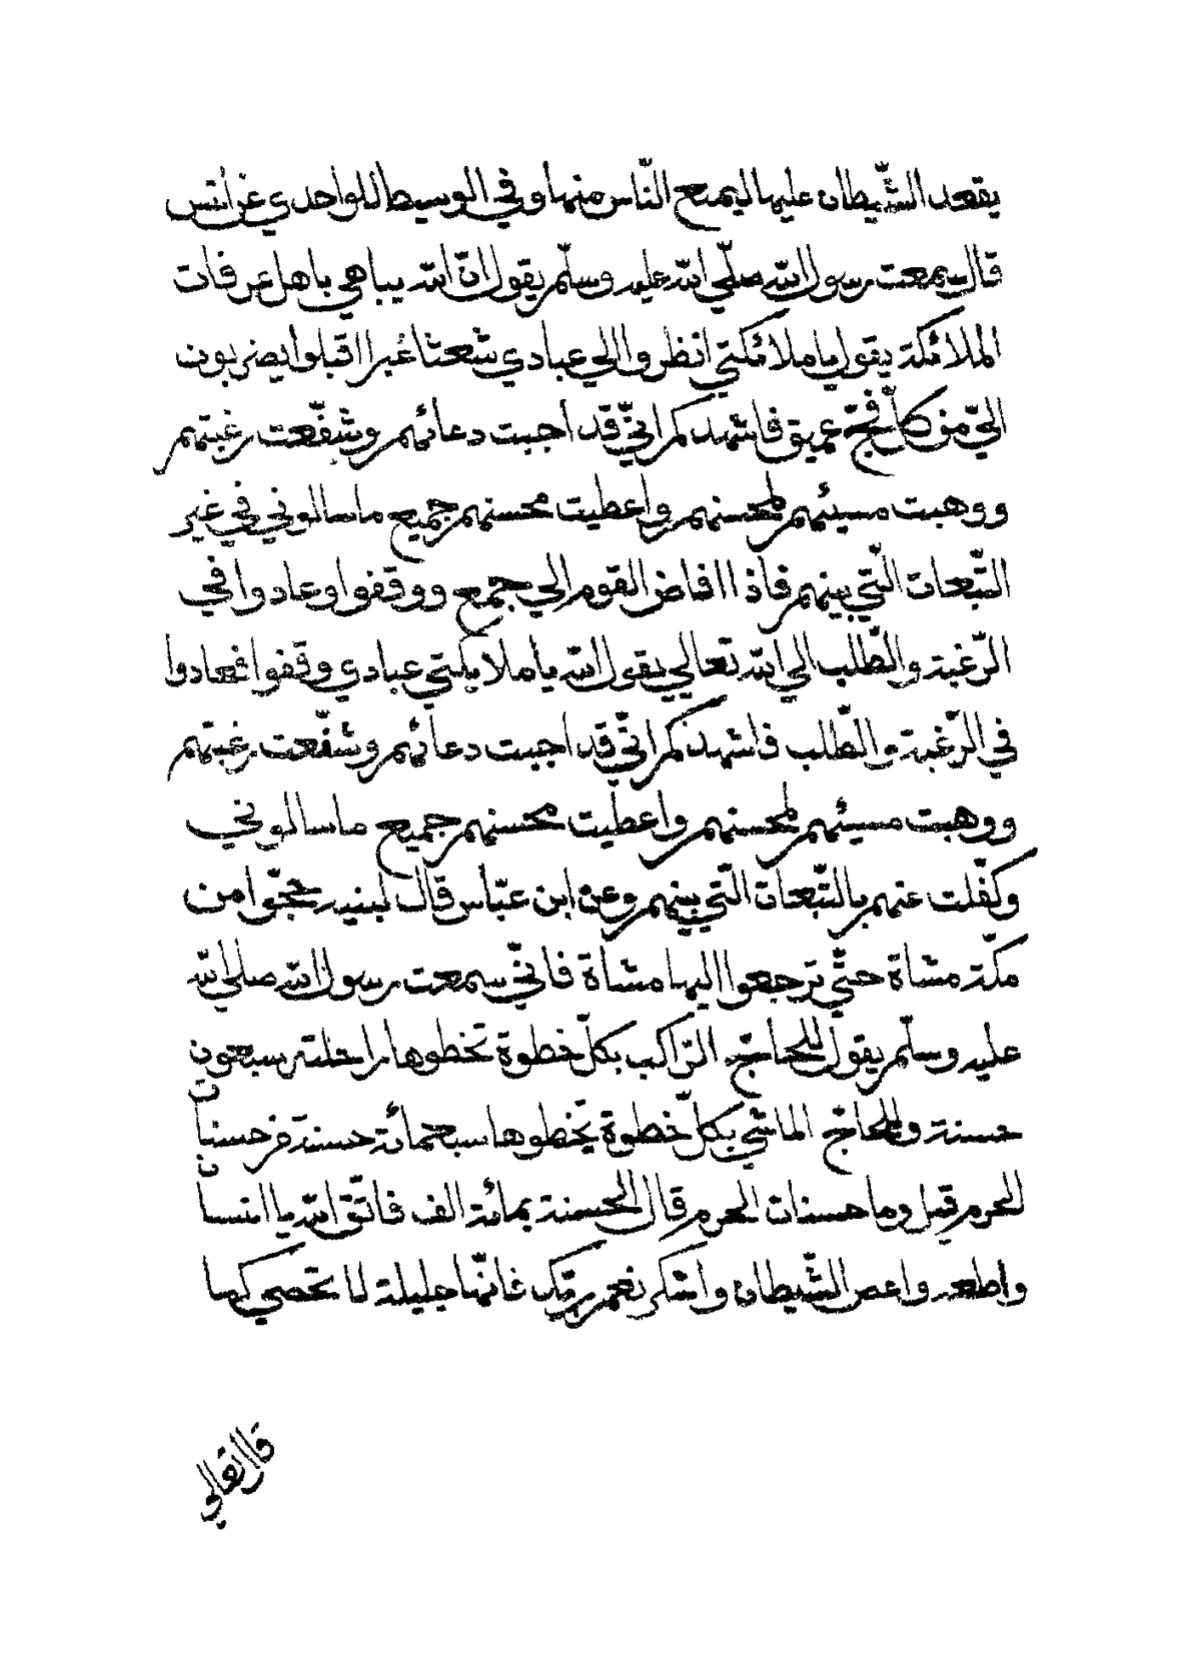 يقعد الشّيطان عليها ليمنع النّاس منها وفي الوسيط للواحدي عن انس
قال سمعت رسول الله صلّي الله عليه وسلّم يقول انّ الله يباهي باهل عرفات
الملائكة يقول يا ملائكتي انظروا الي عبادي شعثا غبرا اقبلوا يضربون
اليّ من كلّ فجّ عميق فاشهدكم انّي قد اجبت دعائهم وشفّعت رغبتهم
ووهبت مسيئهم لمحسنهم واعطيت محسنهم جميع ما سالوني في غير
التّبعات الّتي بينهم فاذا افاض القوم الي جمع ووقفوا وعادوا في
الرّغبة والطّلب الي الله تعالي يقول الله يا ملايكتي عبادي وقفوا فعادوا
في الرّغبة والطّلب فاشهدكم انّي قد اجبت دعائهم وشفّعت رغبتهم
ووهبت مسيئهم لمحسنهم واعطيت محسنهم جميع ما سالوني
وكفّلت عنهم بالتّبعات الّتي بينهم وعن ابن عبّاس قال لبنيه حجّوا من
مكّة مشاة حتّي ترجعوا اليها مشاة فانّي سمعت رسول الله صلي الله
عليه وسلّم يقول للحاجّ الرّاكب بكلّ خطوة تخطوها راحلته سبعون
حسنة وللحاجّ الماشي بكلّ خطوة يخطوها سبعمائة حسنة من حسنات
الحرم قيل وما حسنات الحرم قال الحسنة بمائة الف فاتّق الله يا انسان
واطعه واعص الشّيطان واشكر نعم ربّك فانّها جليلة لا تحصي كما
قال تعالي